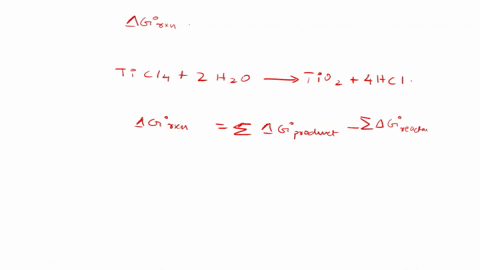 ΔG°rxn.
TiCl4 + 2 H2O ⟶ TiO2 + 4HCl.
ΔG°rxn = Σ ΔG°product – Σ ΔG°reacta